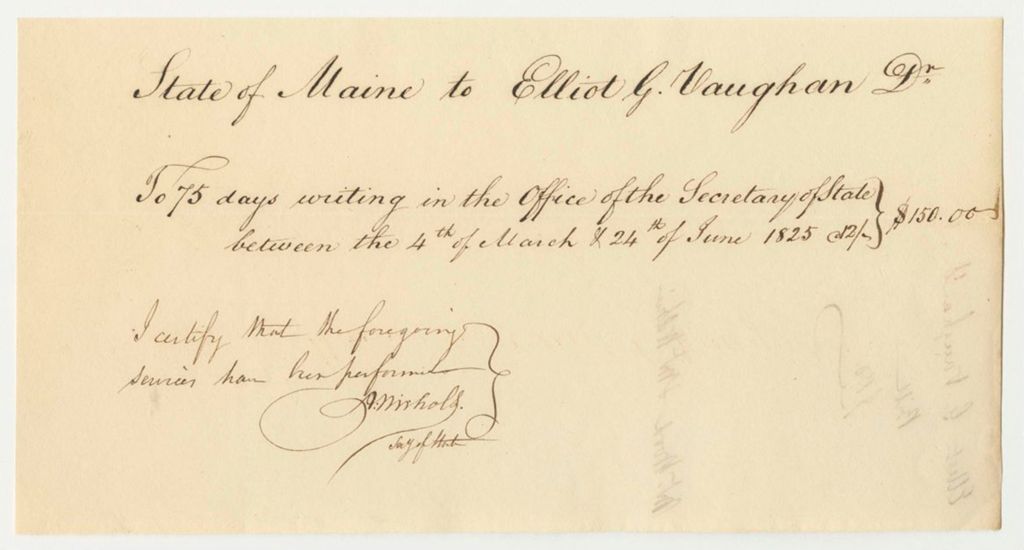 State of Maine to Elliot G. Vaughan Dr.
To 75 days writing in the Office of the Secretary of State
between the 4th of March & 24th of June 1825 @12/ } $150.00
I certify that the foregoing
services have been performed
A. Nichols.
Secy of State